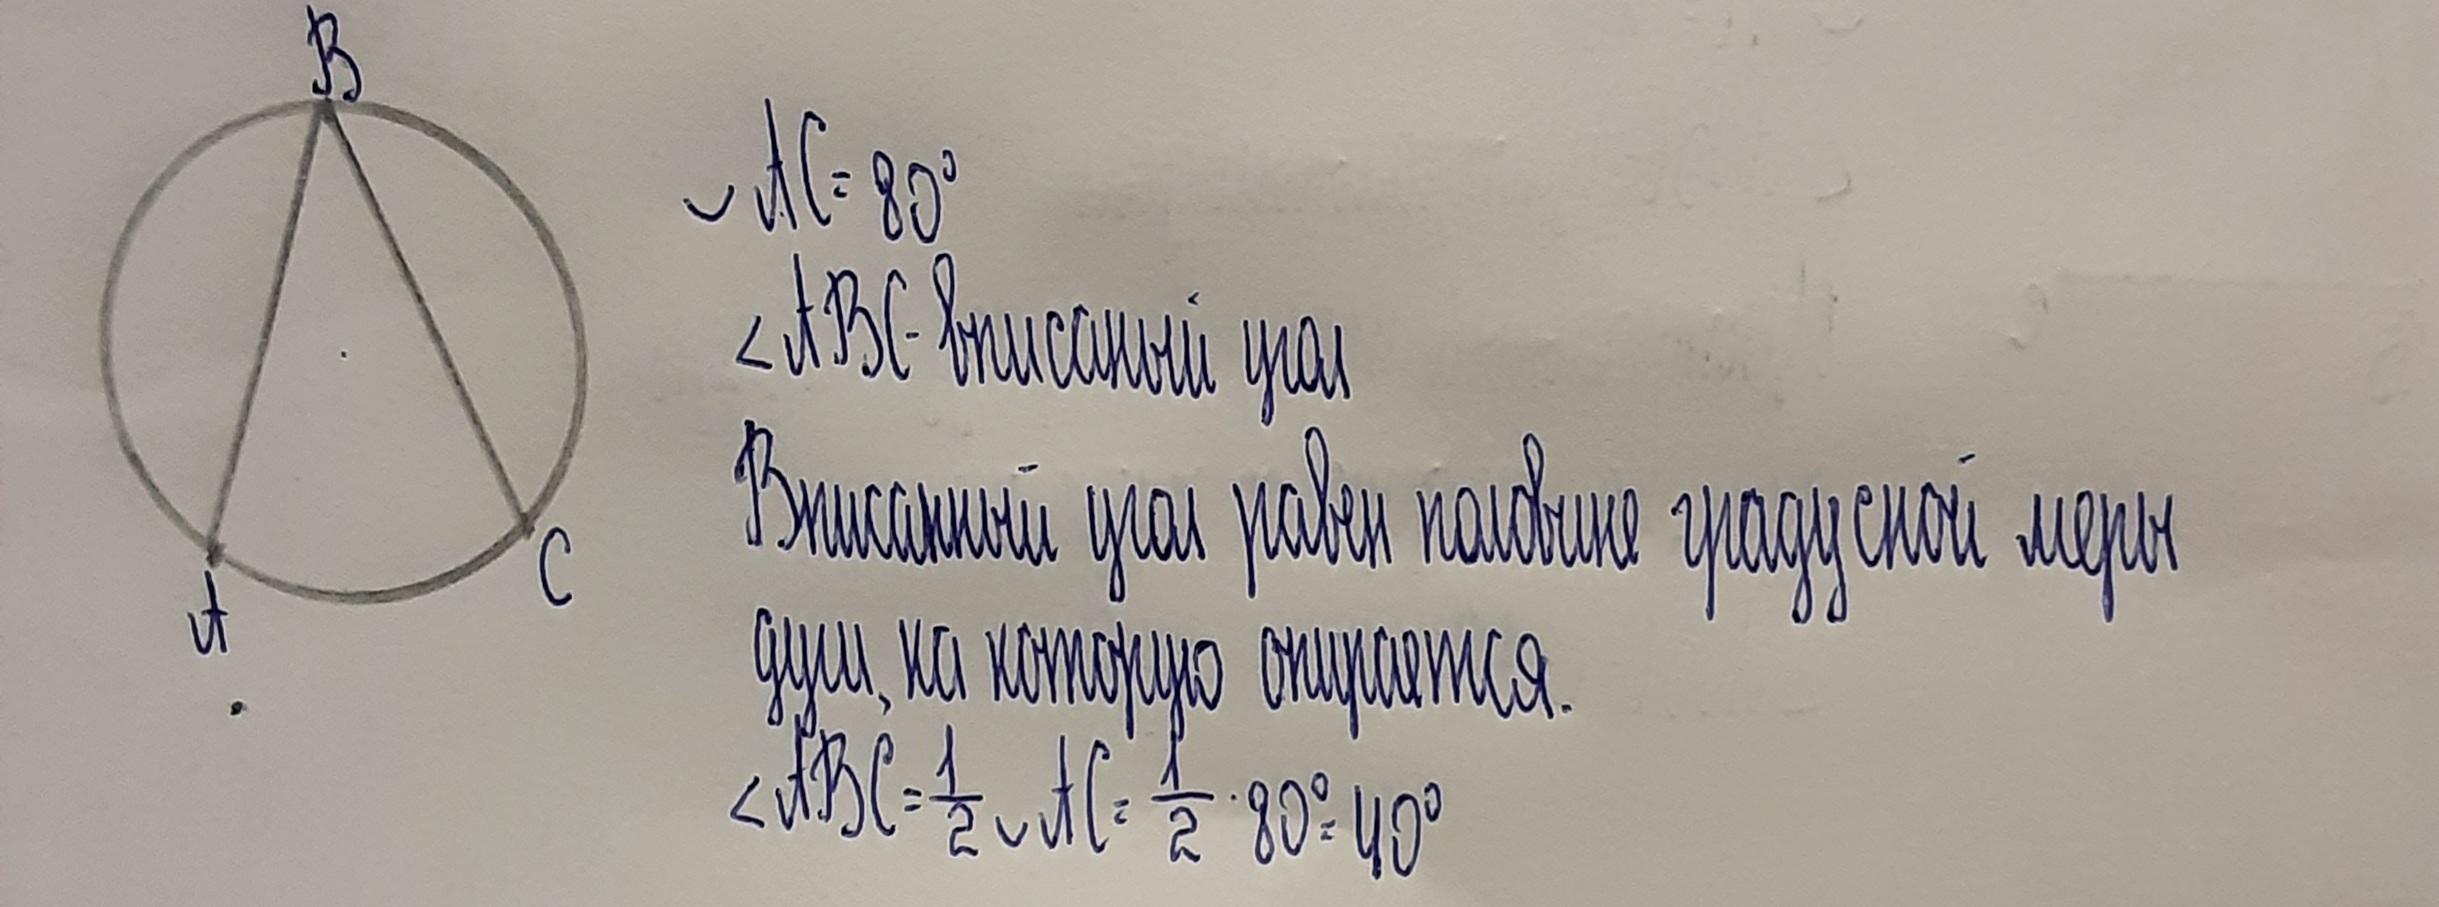 B
A
C
◡ AC = 80°
<ABC - вписаный угол
Вписанный угол равен половине градусной меры
дуги, на которую опирается.
<ABC = 1/2 ◡ AC = 1/2 · 80° = 40°